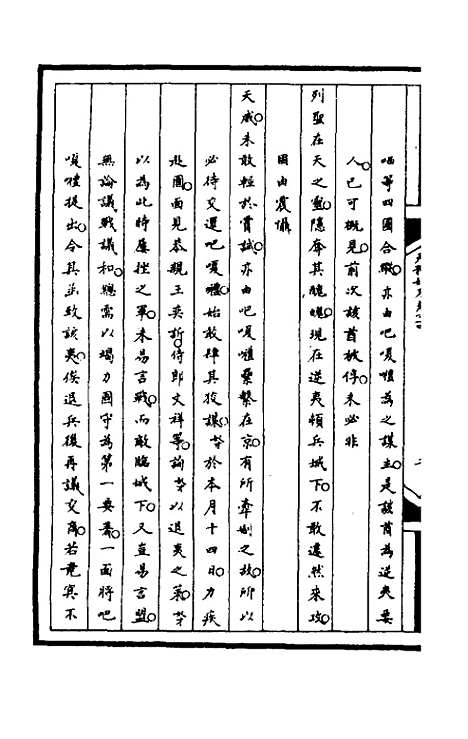 咭等四國合縱亦由吧嗄禮為之謀主是該酋為逆夷要
人已可概見前次該酋被俘未必非
列聖在天之靈隱奪其魄現在逆夷頓兵城下不敢遽然來攻
固由震懾
天威未敢輕於嘗試亦由吧嗄禮縶繫在京有所牽制之故所以
必待交還吧嗄禮始敢肆其狡謀 於本月十四日力疾
赴園面見恭親王奕訢侍郎文祥等諭 以退夷之策
以為此時屢挫之軍未易言戰而敵臨城下又豈易言盟
無論議戰議和總需以竭力固守為第一要義一面將吧
嗄禮提出令其作致該夷俟退兵後再議交還若竟冥不